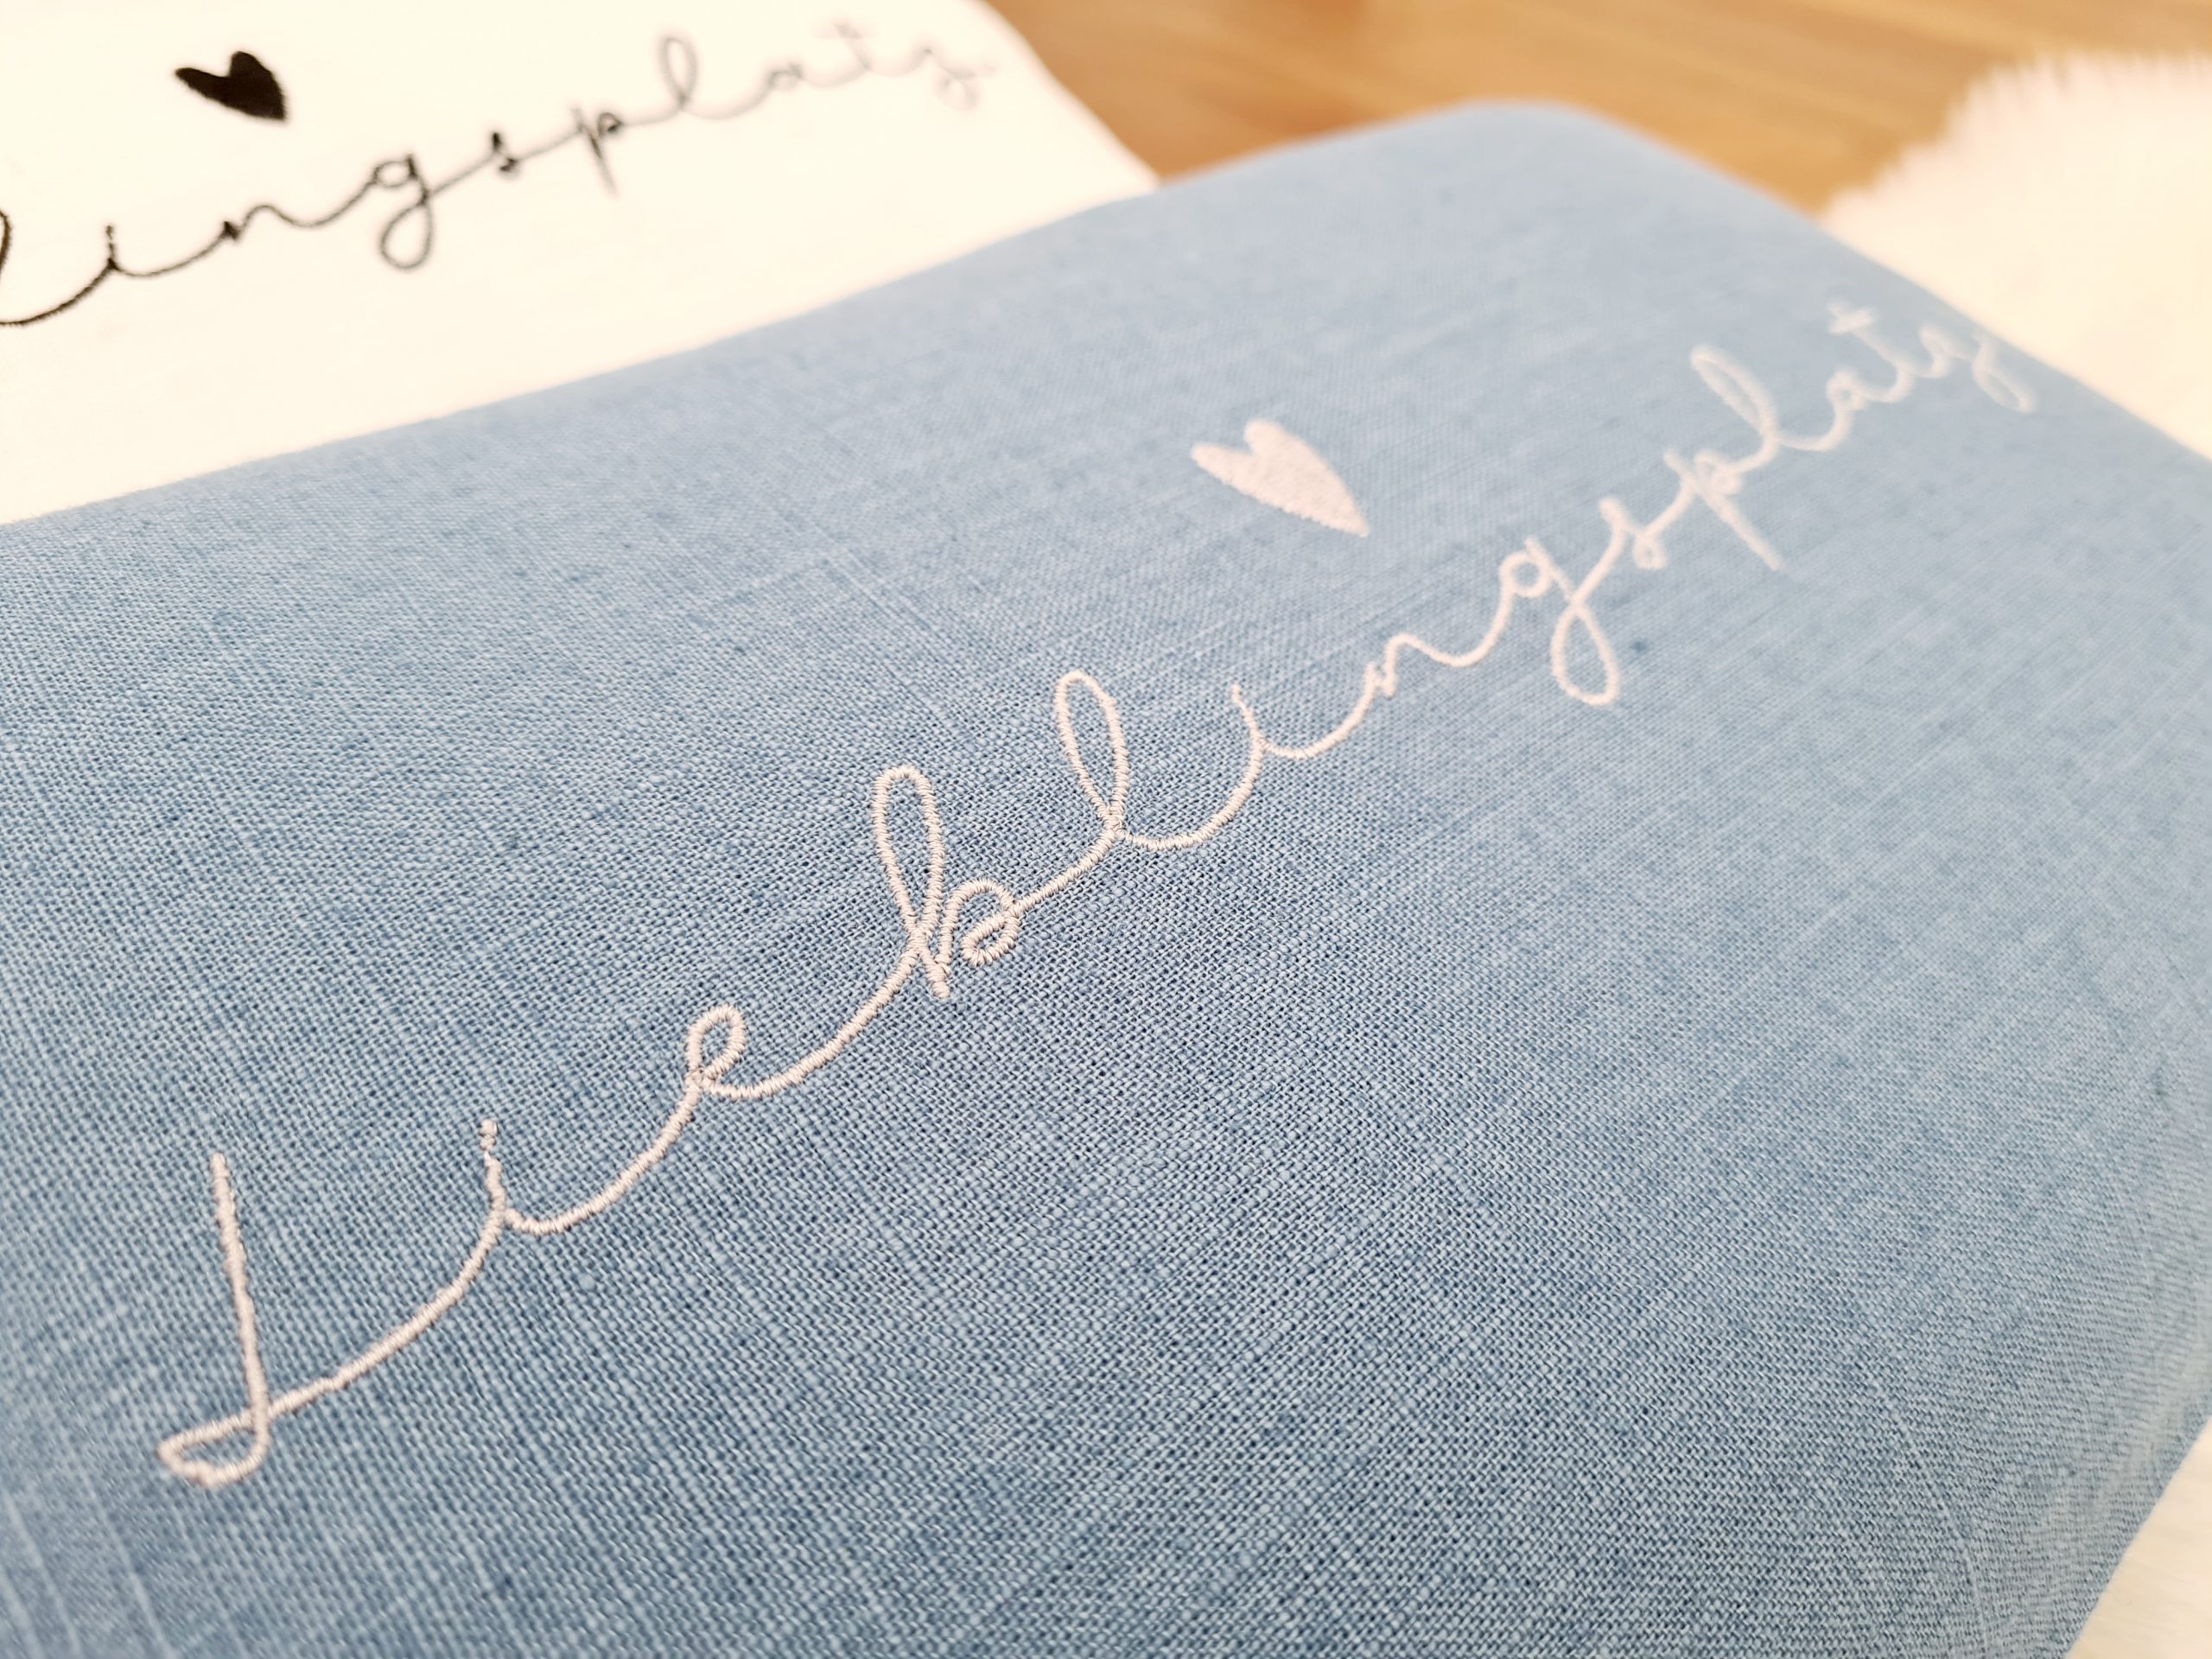 lingsplatz
Lieblingsplatz